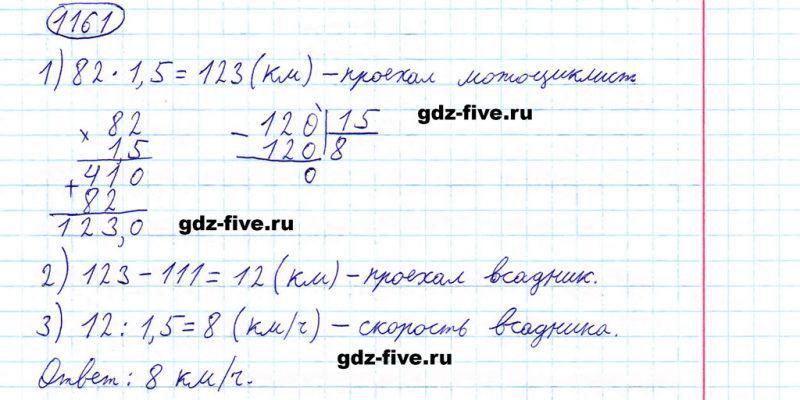 1161
1) 82 · 1,5 = 123 (км) – проехал мотоциклист
gdz-five.ru
× 82
1,5
+ 410
82
123,0
– 120 | 15
120 | 8
0
gdz-five.ru
2) 123 – 111 = 12 (км) – проехал всадник.
3) 12 : 1,5 = 8 (км/ч) – скорость всадника.
gdz-five.ru
Ответ: 8 км/ч.